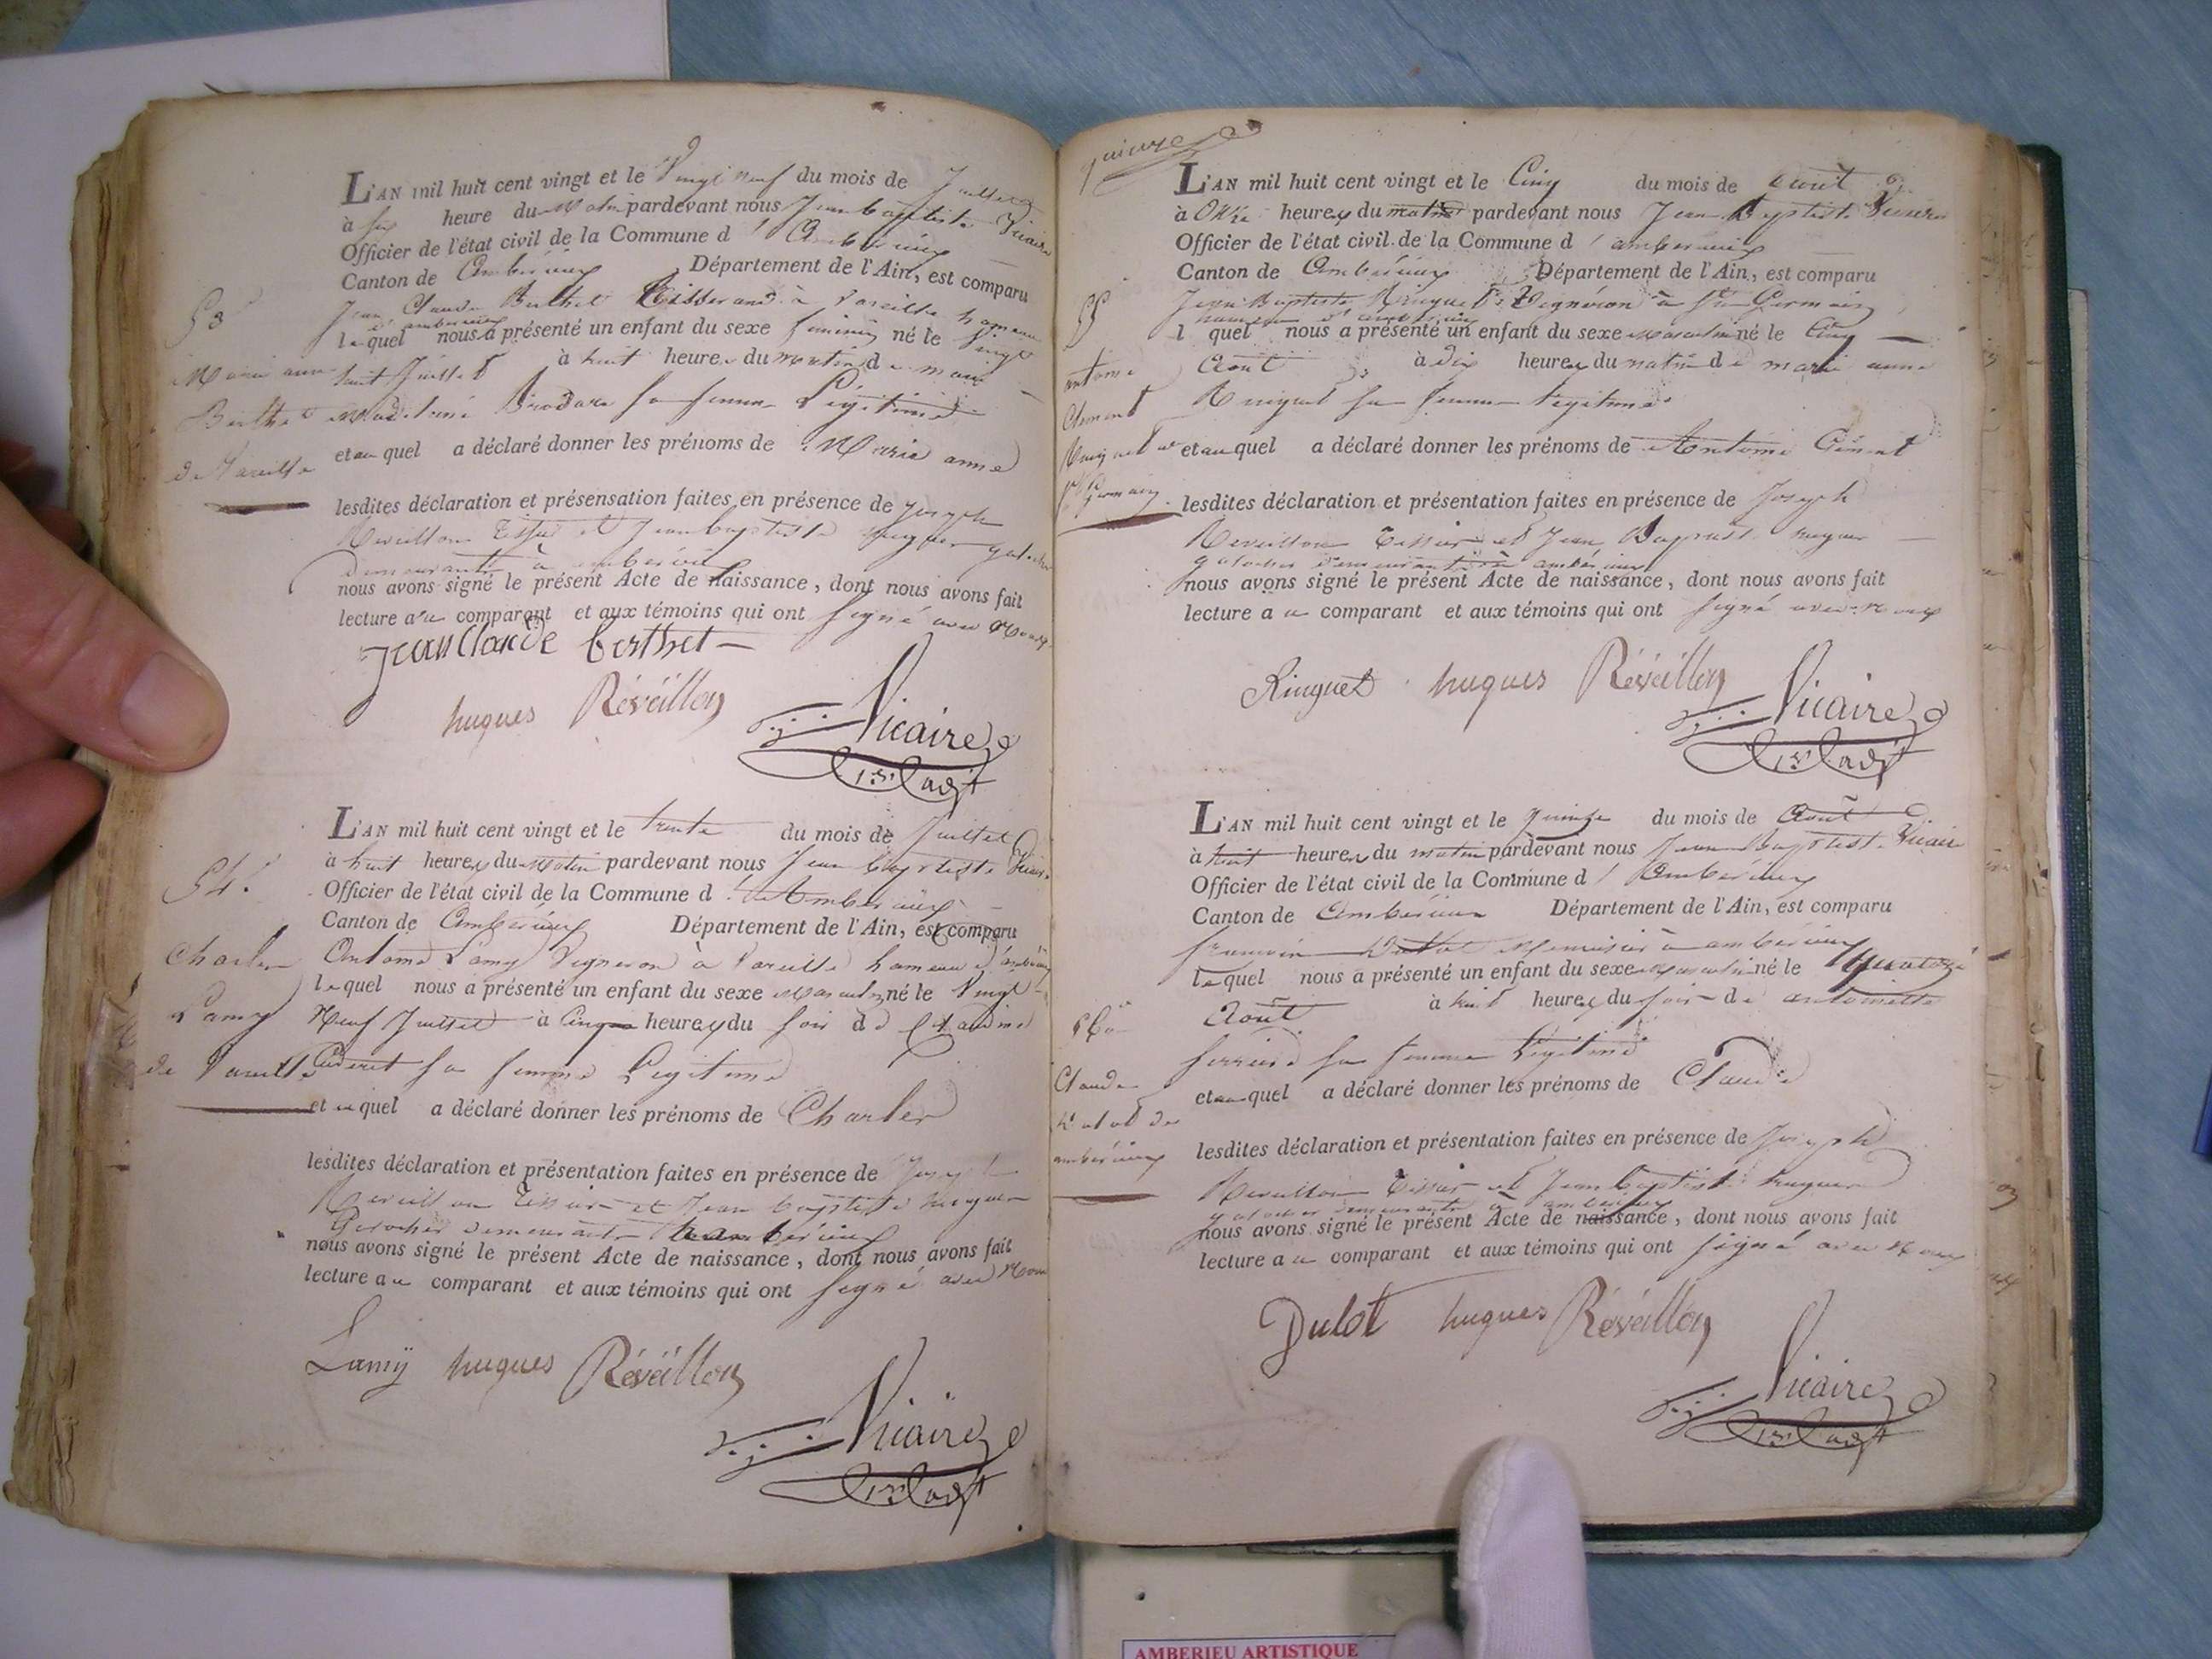 L'AN mil huit cent vingt et le Vingt neuf du mois de Juillet
à six heure du Matin pardevant nous Jean Baptiste Vicaire
Officier de l'état civil de la Commune d' Ambérieux
Canton de Ambérieux Département de l'Ain, est comparu
Jean Claude Berthet Tisserand à Vareille hameau
d'ambérieux
lequel nous a présenté un enfant du sexe feminin né le Vingt
huit Juillet à huit heures du matin de marie
Madelaine Brodara sa femme Légitime
et au quel a déclaré donner les prénoms de Marie anne
lesdites déclaration et présensation faites en présence de Joseph
Reveillon Tissier et Jean baptiste hugues galocher
demeurants à ambérieux
nous avons signé le présent Acte de naissance, dont nous avons fait
lecture au comparant et aux témoins qui ont signé avec Nous
Jean Claude berthet
hugues Révéillon
Vicaire
adjt
53
Marie anne
Berthet
de Vareille
L'AN mil huit cent vingt et le trente du mois de Juillet
à huit heures du Matin pardevant nous Jean baptiste Vicaire
Officier de l'état civil de la Commune d' Ambérieux
Canton de Ambérieux Département de l'Ain, est comparu
Antoine Lamy Vigneron à Vareille hameau d'ambérieux
lequel nous a présenté un enfant du sexe Masculin né le Vingt
Neuf Juillet à Cinq heures du soir de Claudine
sa femme Légitime
et au quel a déclaré donner les prénoms de Charles
lesdites déclaration et présentation faites en présence de Joseph
Reveillon Tissier et Jean baptiste hugues
Galocher demeurants à ambérieux
nous avons signé le présent Acte de naissance, dont nous avons fait
lecture au comparant et aux témoins qui ont signé avec Nous
Lamÿ hugues Révéillon
Vicaire
adjt
54.
Charles
Lamy
de Vareille
quinze
L'AN mil huit cent vingt et le Cinq du mois de Août
à Onze heures du matin pardevant nous Jean Baptiste Vicaire
Officier de l'état civil de la Commune d' ambérieux
Canton de Ambérieux Département de l'Ain, est comparu
Jean Baptiste Ringuet Vigneron à St Germain
hameau d'ambérieux
l quel nous a présenté un enfant du sexe masculin né le Cinq
Août à dix heures du matin de marie anne
Ringuet sa femme légitime
et au quel a déclaré donner les prénoms de Antoine Clément
lesdites déclaration et présentation faites en présence de Joseph
Reveillon Tissier et Jean Baptiste hugues
galocher demeurants à ambérieux
nous avons signé le présent Acte de naissance, dont nous avons fait
lecture au comparant et aux témoins qui ont signé avec nous
Ringuet hugues Révéillon
Vicaire
adjt
55
antoine
Clement
Ringuet de
St Germain
L'AN mil huit cent vingt et le quinze du mois de Août
à huit heures du matin pardevant nous Jean Baptiste Vicaire
Officier de l'état civil de la Commune d' Ambérieux
Canton de Ambérieux Département de l'Ain, est comparu
Dulot Menuisier à ambérieux
lequel nous a présenté un enfant du sexe masculin né le quatorze
Août à huit heures du soir de antoinette
sa femme légitime
et au quel a déclaré donner les prénoms de Claude
lesdites déclaration et présentation faites en présence de Joseph
Reveillon Tissier et Jean baptiste hugues
galocher demeurants à ambérieux
nous avons signé le présent Acte de naissance, dont nous avons fait
lecture au comparant et aux témoins qui ont signé avec Nous
Dulot hugues Révéillon
Vicaire
adjt
56
Claude
Dulot de
ambérieux
AMBERIEU ARTISTIQUE